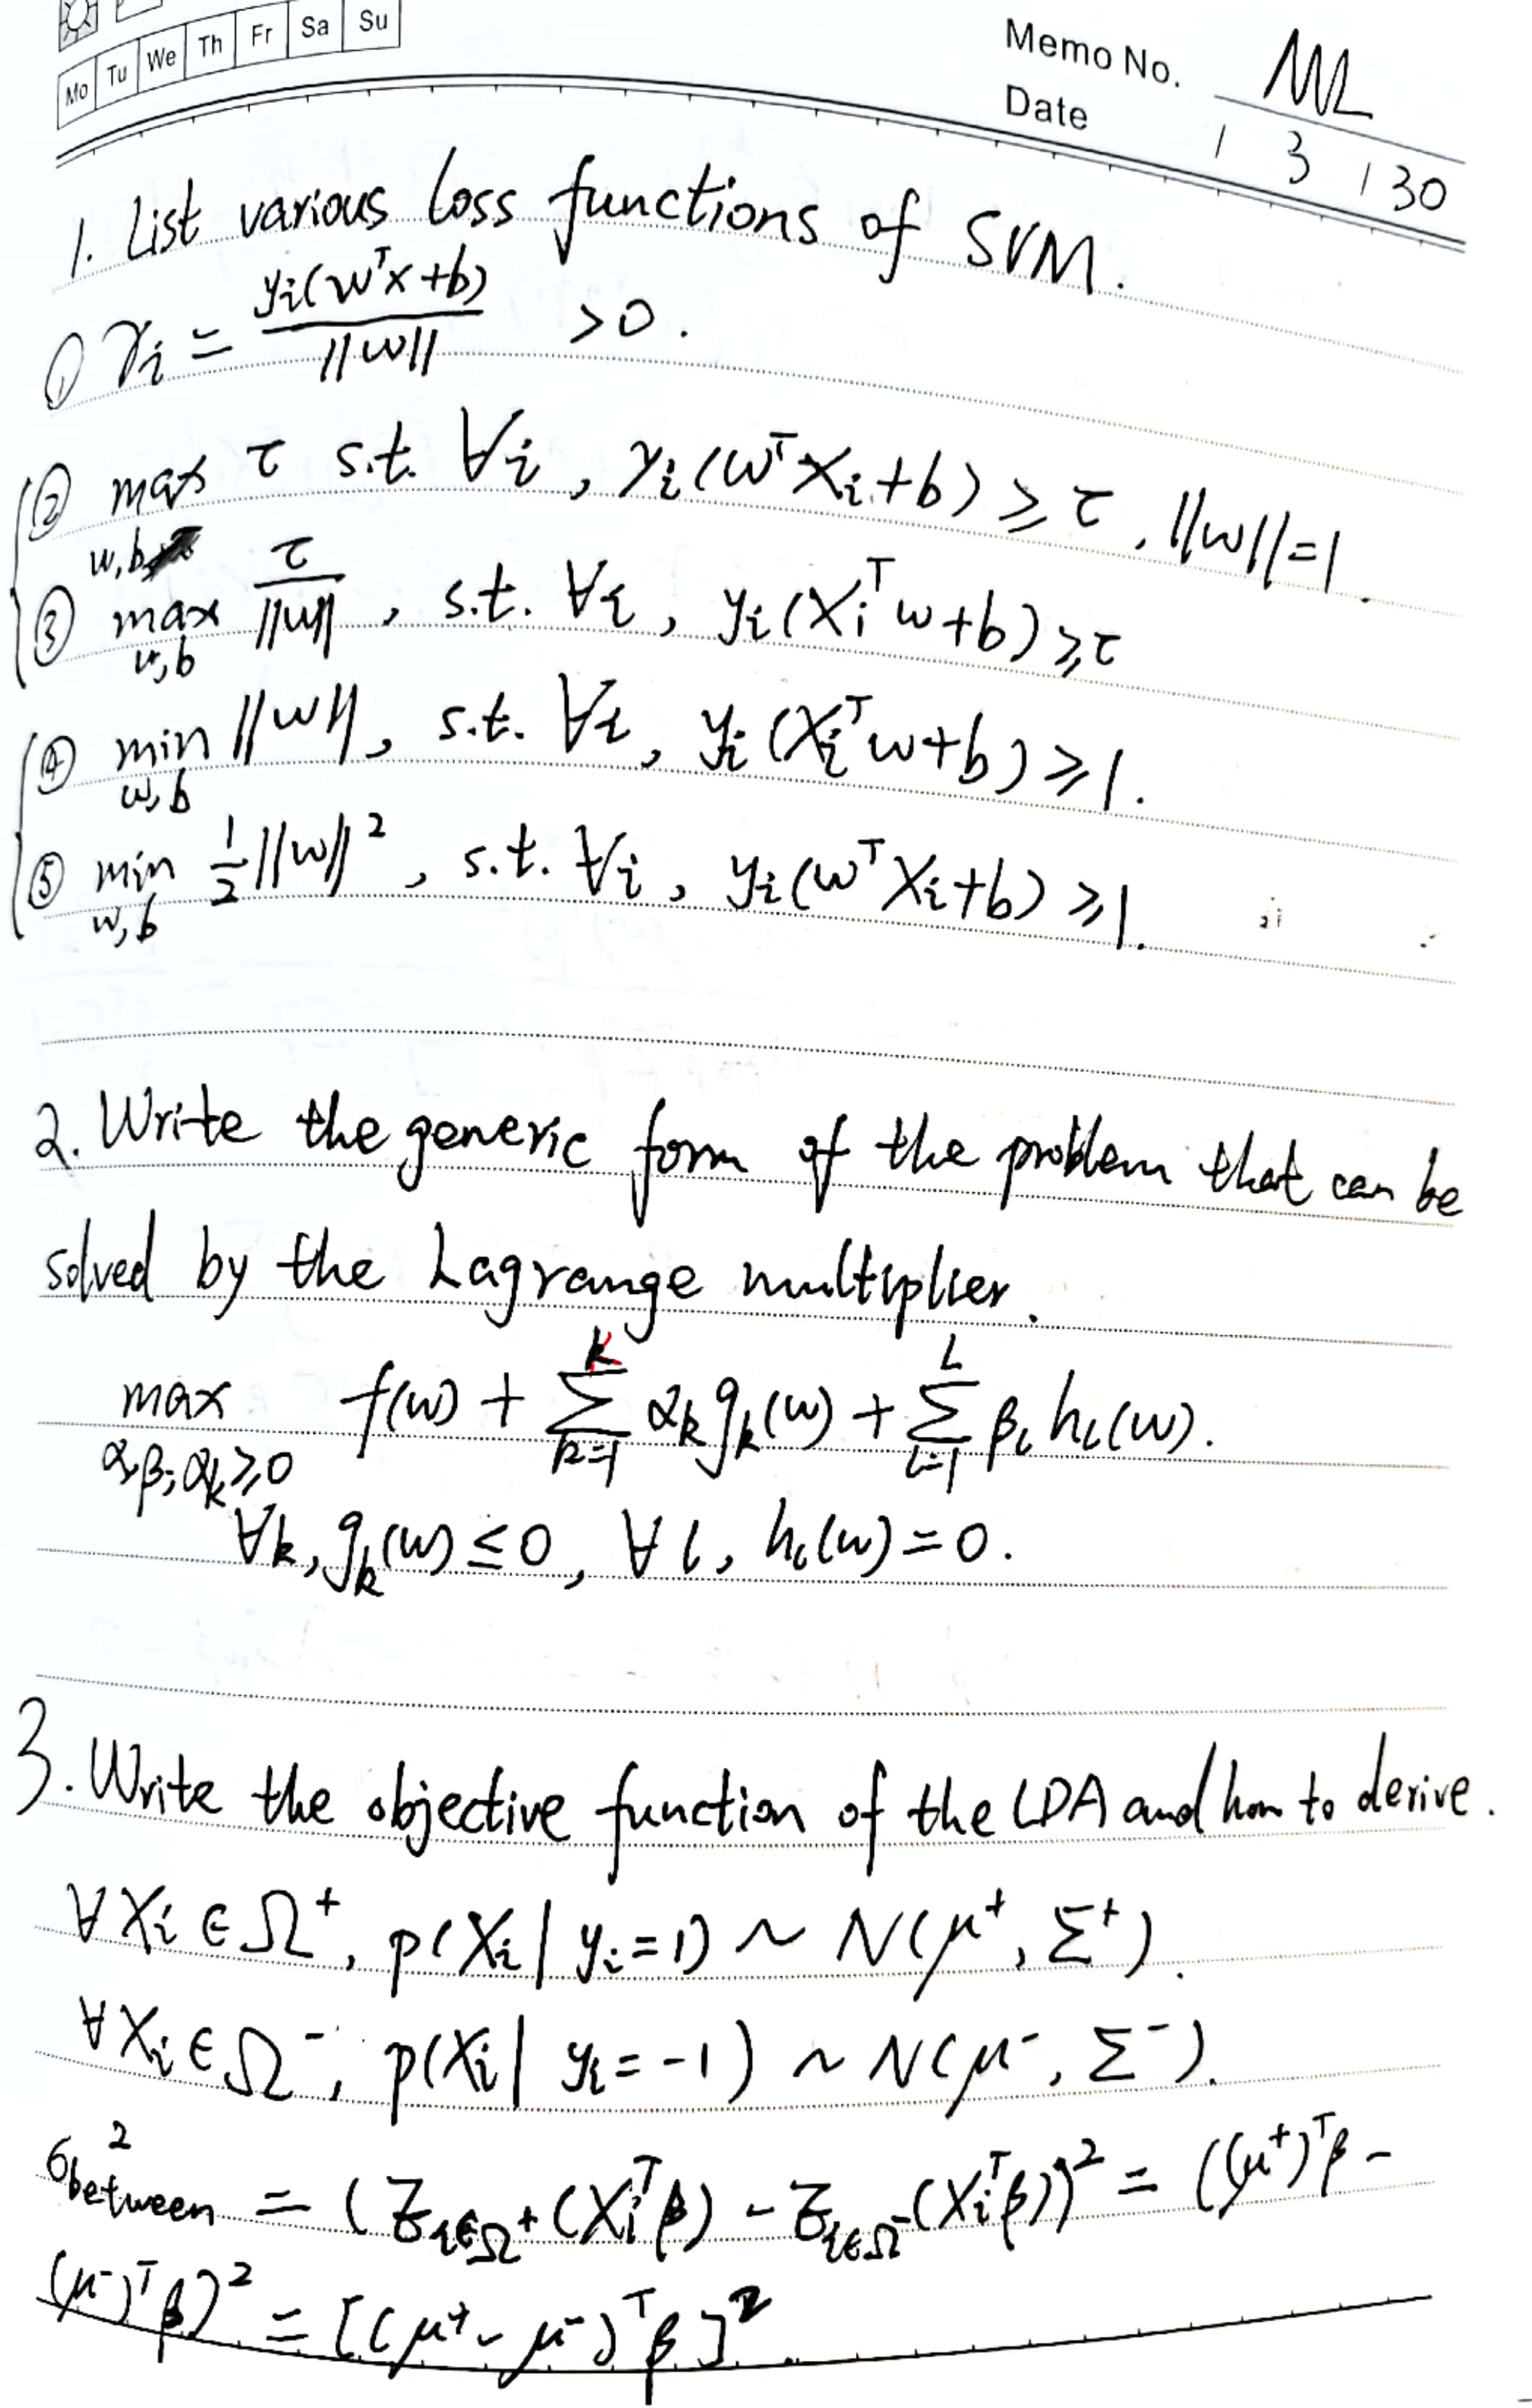 Mo Tu We Th Fr Sa Su
Memo No. ML
Date / 3 / 30
1. List various loss functions of SVM.
① γi = yi(wᵀx+b) / ||w|| >0.
② max w,b τ s.t. ∀i, yi(wᵀXi+b) ≥ τ, ||w||=1.
③ max w,b τ/||w||, s.t. ∀i, yi(Xiᵀw+b) ≥ τ
④ min w,b ||w||, s.t. ∀i, yi(Xiᵀw+b) ≥ 1.
⑤ min w,b ½||w||², s.t. ∀i, yi(wᵀXi+b) ≥ 1.
2. Write the generic form of the problem that can be
solved by the Lagrange multiplier.
max α,β;αk≥0 f(w) + Σ_{k=1}^{K} αk gk(w) + Σ_{l=1}^{L} βl hl(w).
∀k, gk(w) ≤ 0, ∀l, hl(w) = 0.
3. Write the objective function of the LDA and how to derive.
∀Xi ∈ Ω⁺, p(Xi | yi=1) ~ N(μ⁺, Σ⁺).
∀Xi ∈ Ω⁻, p(Xi | yi=-1) ~ N(μ⁻, Σ⁻).
σ²between = (E_{i∈Ω⁺}(Xiᵀβ) - E_{i∈Ω⁻}(Xiᵀβ))² = ((μ⁺)ᵀβ -
(μ⁻)ᵀβ)² = [(μ⁺ - μ⁻)ᵀβ]²